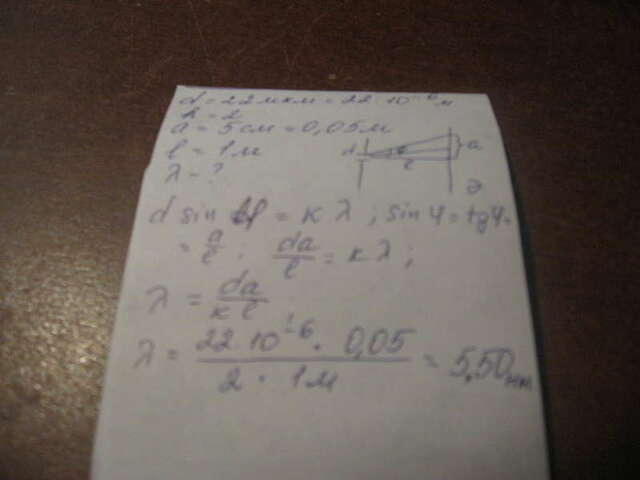 d = 22 мкм = 22 · 10⁻⁶ м
k = 2
a = 5 см = 0,05 м
l = 1 м
λ - ?
a
l
Э
d sin φ = k λ ; sin φ = tg φ =
= a/l ; da/l = k λ ;
λ = da/kl
λ = 22·10⁻⁶ · 0,05 / 2 · 1м = 5,50 нм